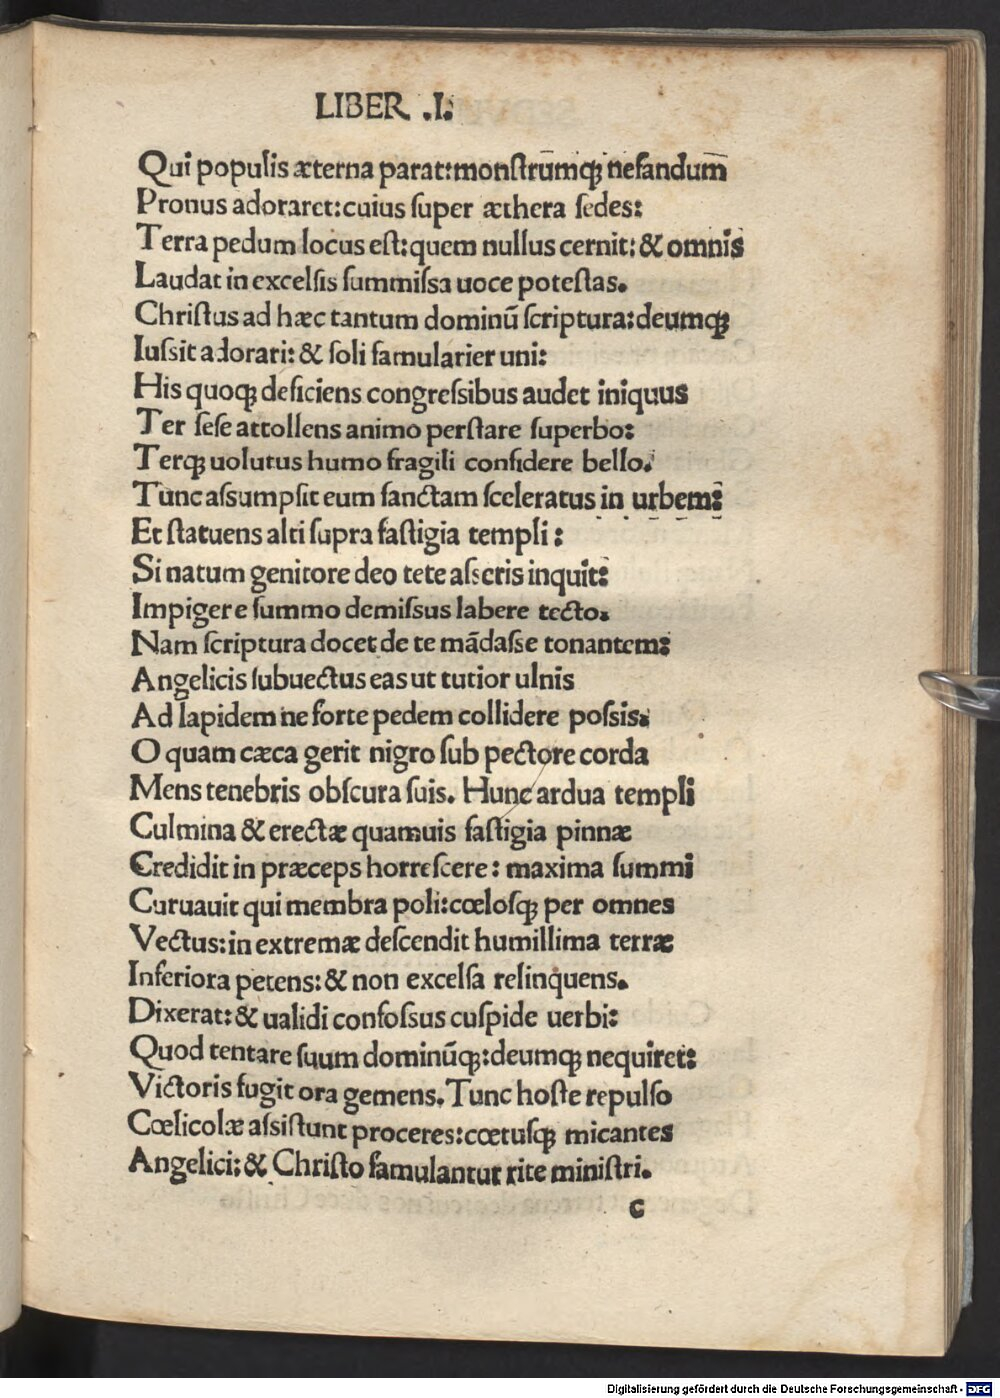 LIBER .I.
Qui populis æterna parat: monstrūmqꝫ nefandum̄
Pronus adoraret: cuius super æthera sedes:
Terra pedum locus est: quem nullus cernit: & omnis
Laudat in excelsis summissa uoce potestas.
Christus ad hæc tantum dominū scriptura: deumqꝫ
Iussit adorari: & soli famularier uni:
His quoqꝫ deficiens congressibus audet iniquus
Ter sese attollens animo perstare superbo:
Terqꝫ uolutus humo fragili confidere bello.
Tunc assumpsit eum sanctam sceleratus in urbem:
Et statuens alti supra fastigia templi:
Si natum genitore deo tete asseris inquit:
Impigere summo demissus labere tecto.
Nam scriptura docet de te mādasse tonantem:
Angelicis subuectus eas ut tutior ulnis
Ad lapidem ne forte pedem collidere possis.
O quam cæca gerit nigro sub pectore corda
Mens tenebris obscura suis. Hunc ardua templi
Culmina & erectæ quamuis fastigia pinnæ
Credidit in præceps horrescere: maxima summi
Curuauit qui membra poli: cœlosqꝫ per omnes
Vectus: in extremæ descendit humillima terræ
Inferiora petens: & non excelsa relinquens.
Dixerat: & ualidi confossus cuspide uerbi:
Quod tentare suum dominūqꝫ: deumqꝫ nequiret:
Victoris fugit ora gemens. Tunc hoste repulso
Cœlicolæ assistunt proceres: cœtusqꝫ micantes
Angelici: & Christo famulantur rite ministri.
c
Digitalisierung gefördert durch die Deutsche Forschungsgemeinschaft - DFG